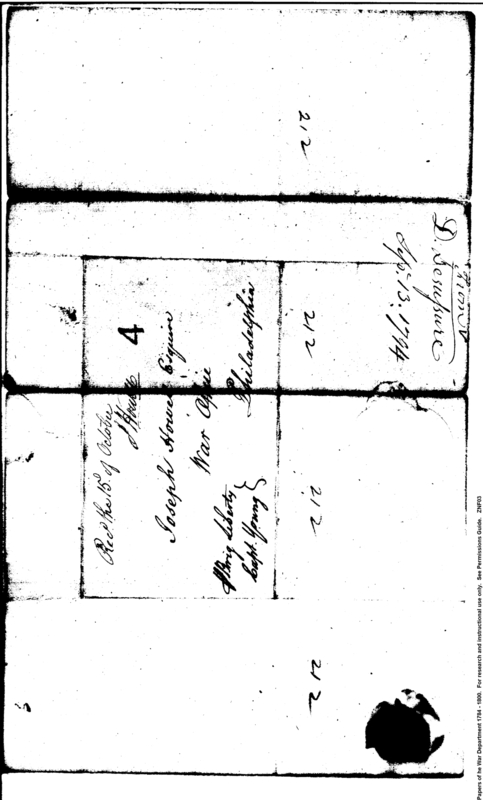 From
D. Desaussure
Sep. 13. 1794
Rec'd the 15 of October
J Howell
4
Joseph Howell Esquire
War Office
Philadelphia
Brig Liberty
Capt. Young
212
212
212
212
Papers of he War Department 1784 - 1800. For research and instructional use only. See Permissions Guide. ZNF03